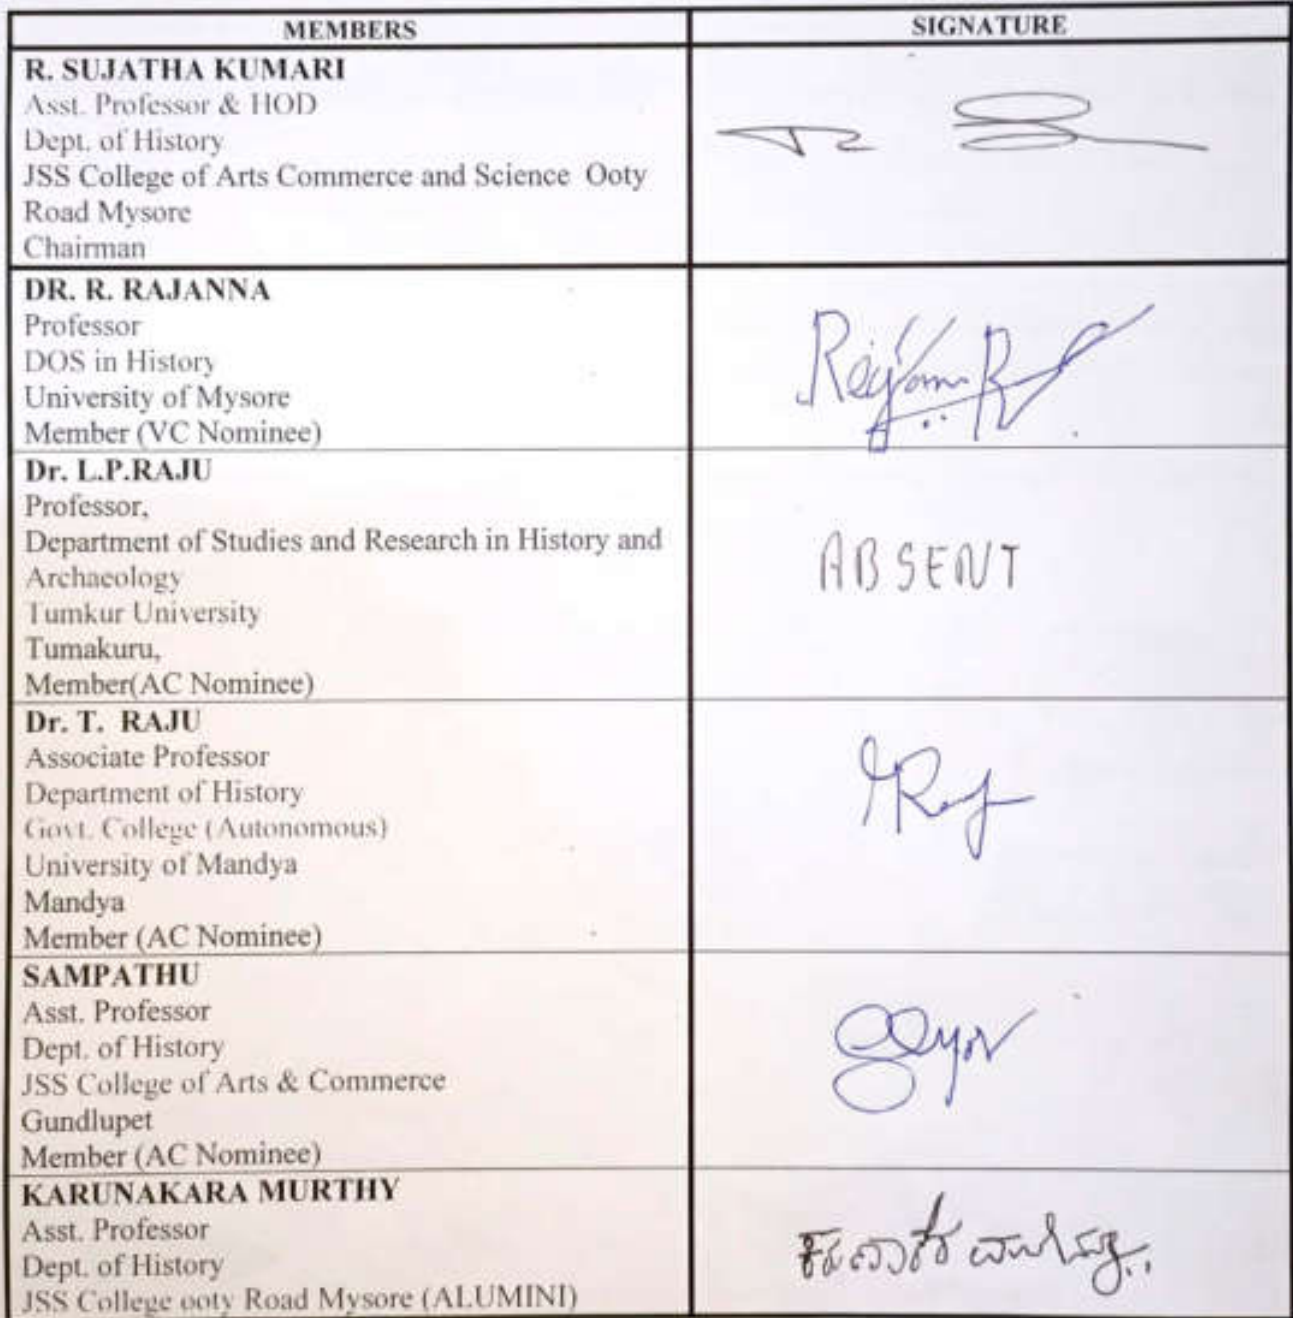 MEMBERS SIGNATURE
R. SUJATHA KUMARI
Asst. Professor & HOD
Dept. of History
JSS College of Arts Commerce and Science Ooty
Road Mysore
Chairman
DR. R. RAJANNA
Professor
DOS in History
University of Mysore
Member (VC Nominee)
Dr. L.P.RAJU
Professor,
Department of Studies and Research in History and
Archaeology
Tumkur University
Tumakuru,
Member(AC Nominee)
ABSENT
Dr. T. RAJU
Associate Professor
Department of History
Govt. College (Autonomous)
University of Mandya
Mandya
Member (AC Nominee)
SAMPATHU
Asst. Professor
Dept. of History
JSS College of Arts & Commerce
Gundlupet
Member (AC Nominee)
KARUNAKARA MURTHY
Asst. Professor
Dept. of History
JSS College ooty Road Mysore (ALUMINI)